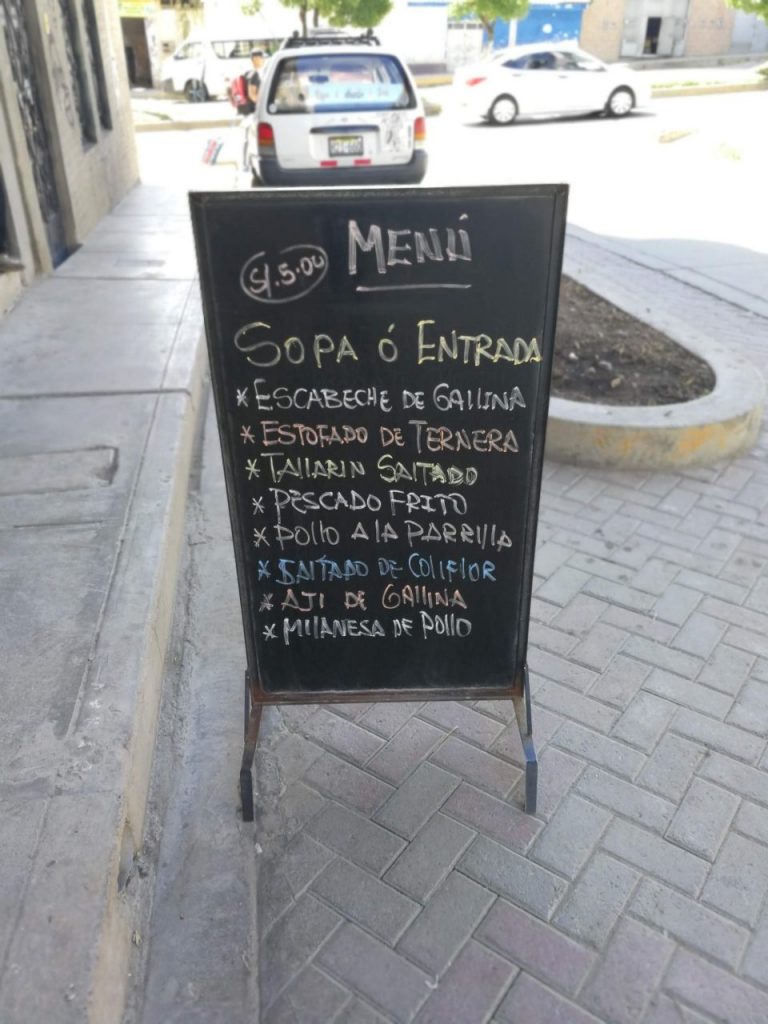 S/.5.00 MENÚ
SOPA Ó ENTRADA
* ESCABECHE DE GALLINA
* ESTOFADO DE TERNERA
* TALLARIN SALTADO
* PESCADO FRITO
* POLLO A LA PARRILLA
* SALTADO DE COLIFLOR
* AJI DE GALLINA
* MILANESA DE POLLO